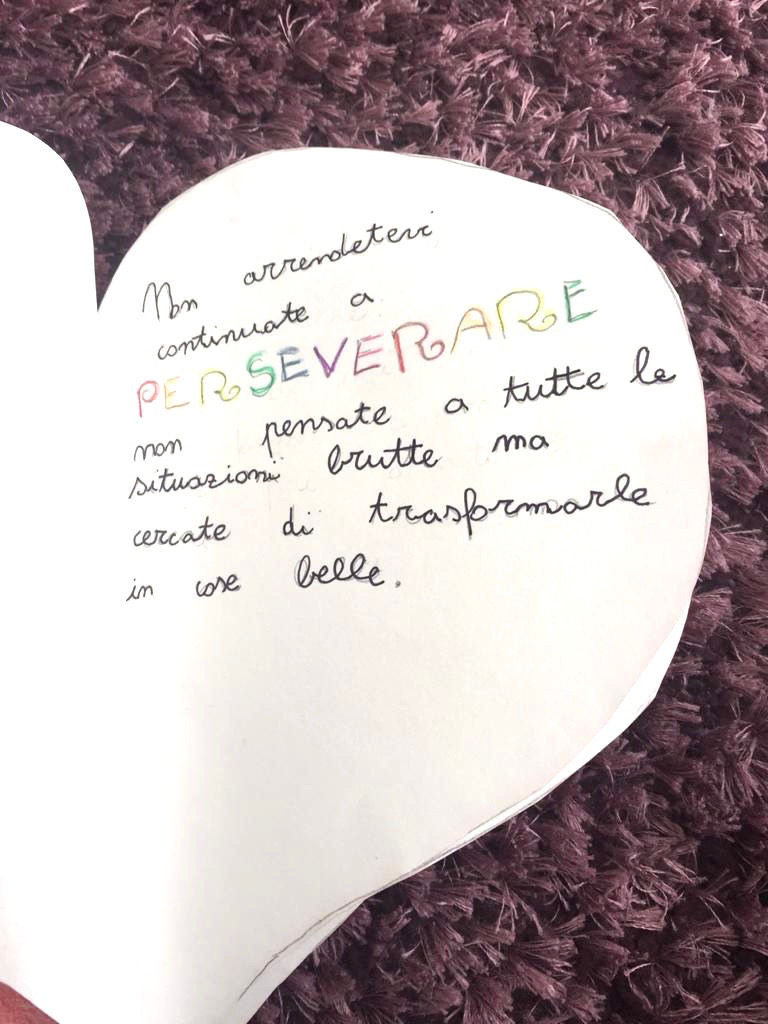 Non arrendetevi
continuate a
PERSEVERARE
non pensate a tutte le
situazioni brutte ma
cercate di trasformarle
in cose belle.